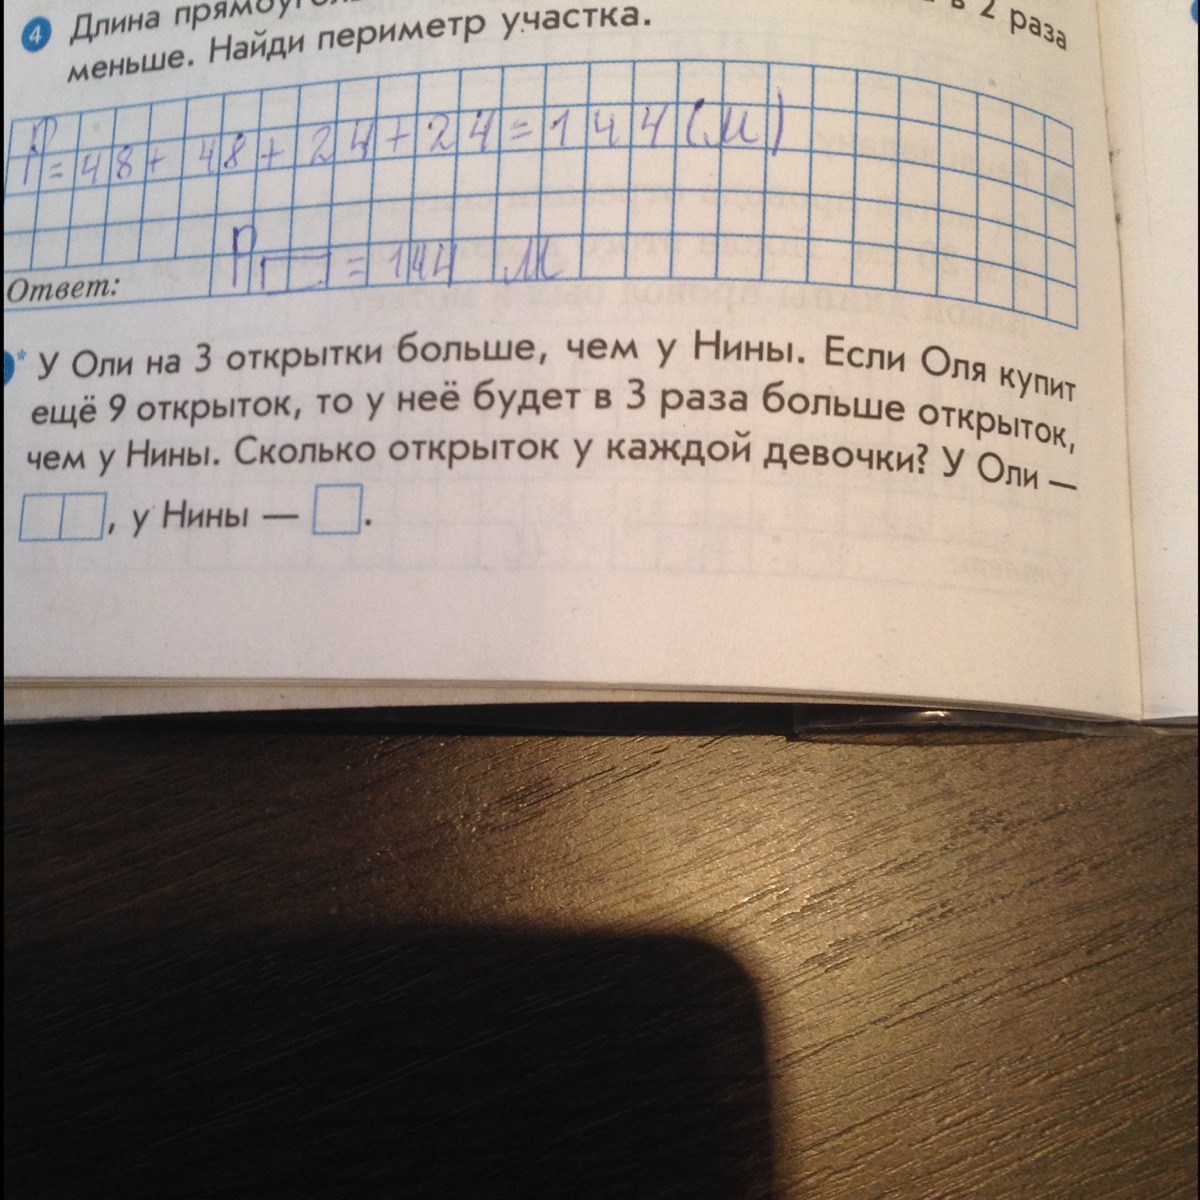 4 Длина прямоуголь
в 2 раза
меньше. Найди периметр участка.
P=48+48+24+24=144(м)
Ответ: P▭=144 м
* У Оли на 3 открытки больше, чем у Нины. Если Оля купит
ещё 9 открыток, то у неё будет в 3 раза больше открыток,
чем у Нины. Сколько открыток у каждой девочки? У Оли —
, у Нины — .